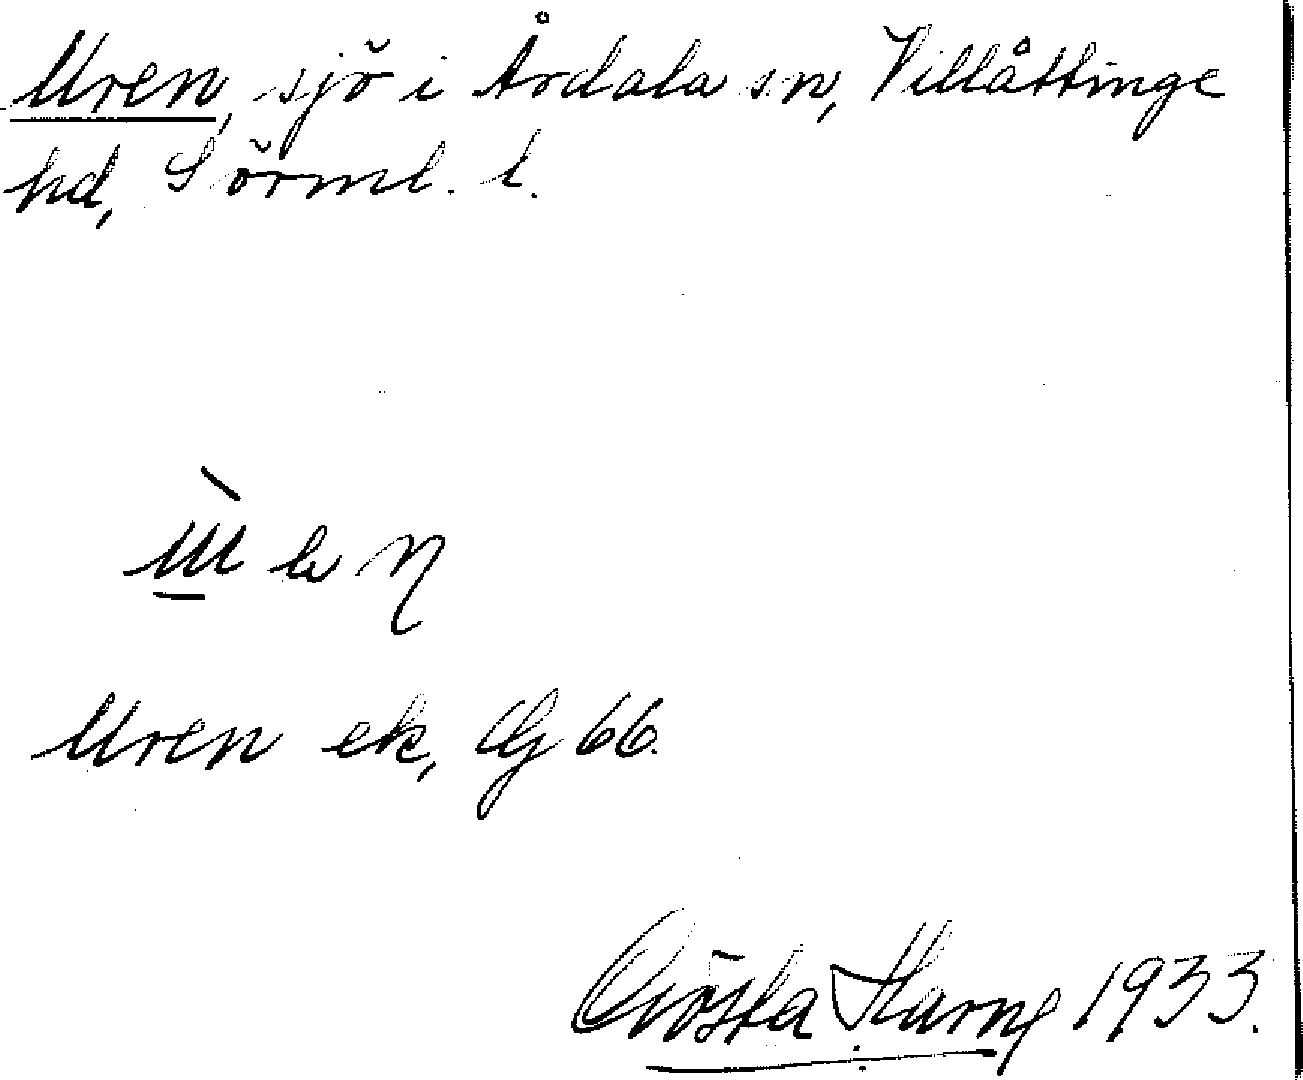 Uren, sjö i Årdala sn, Villåttinge
hd, Sörml. l.
Uren ek, G 66.
Gösta Harne 1933.